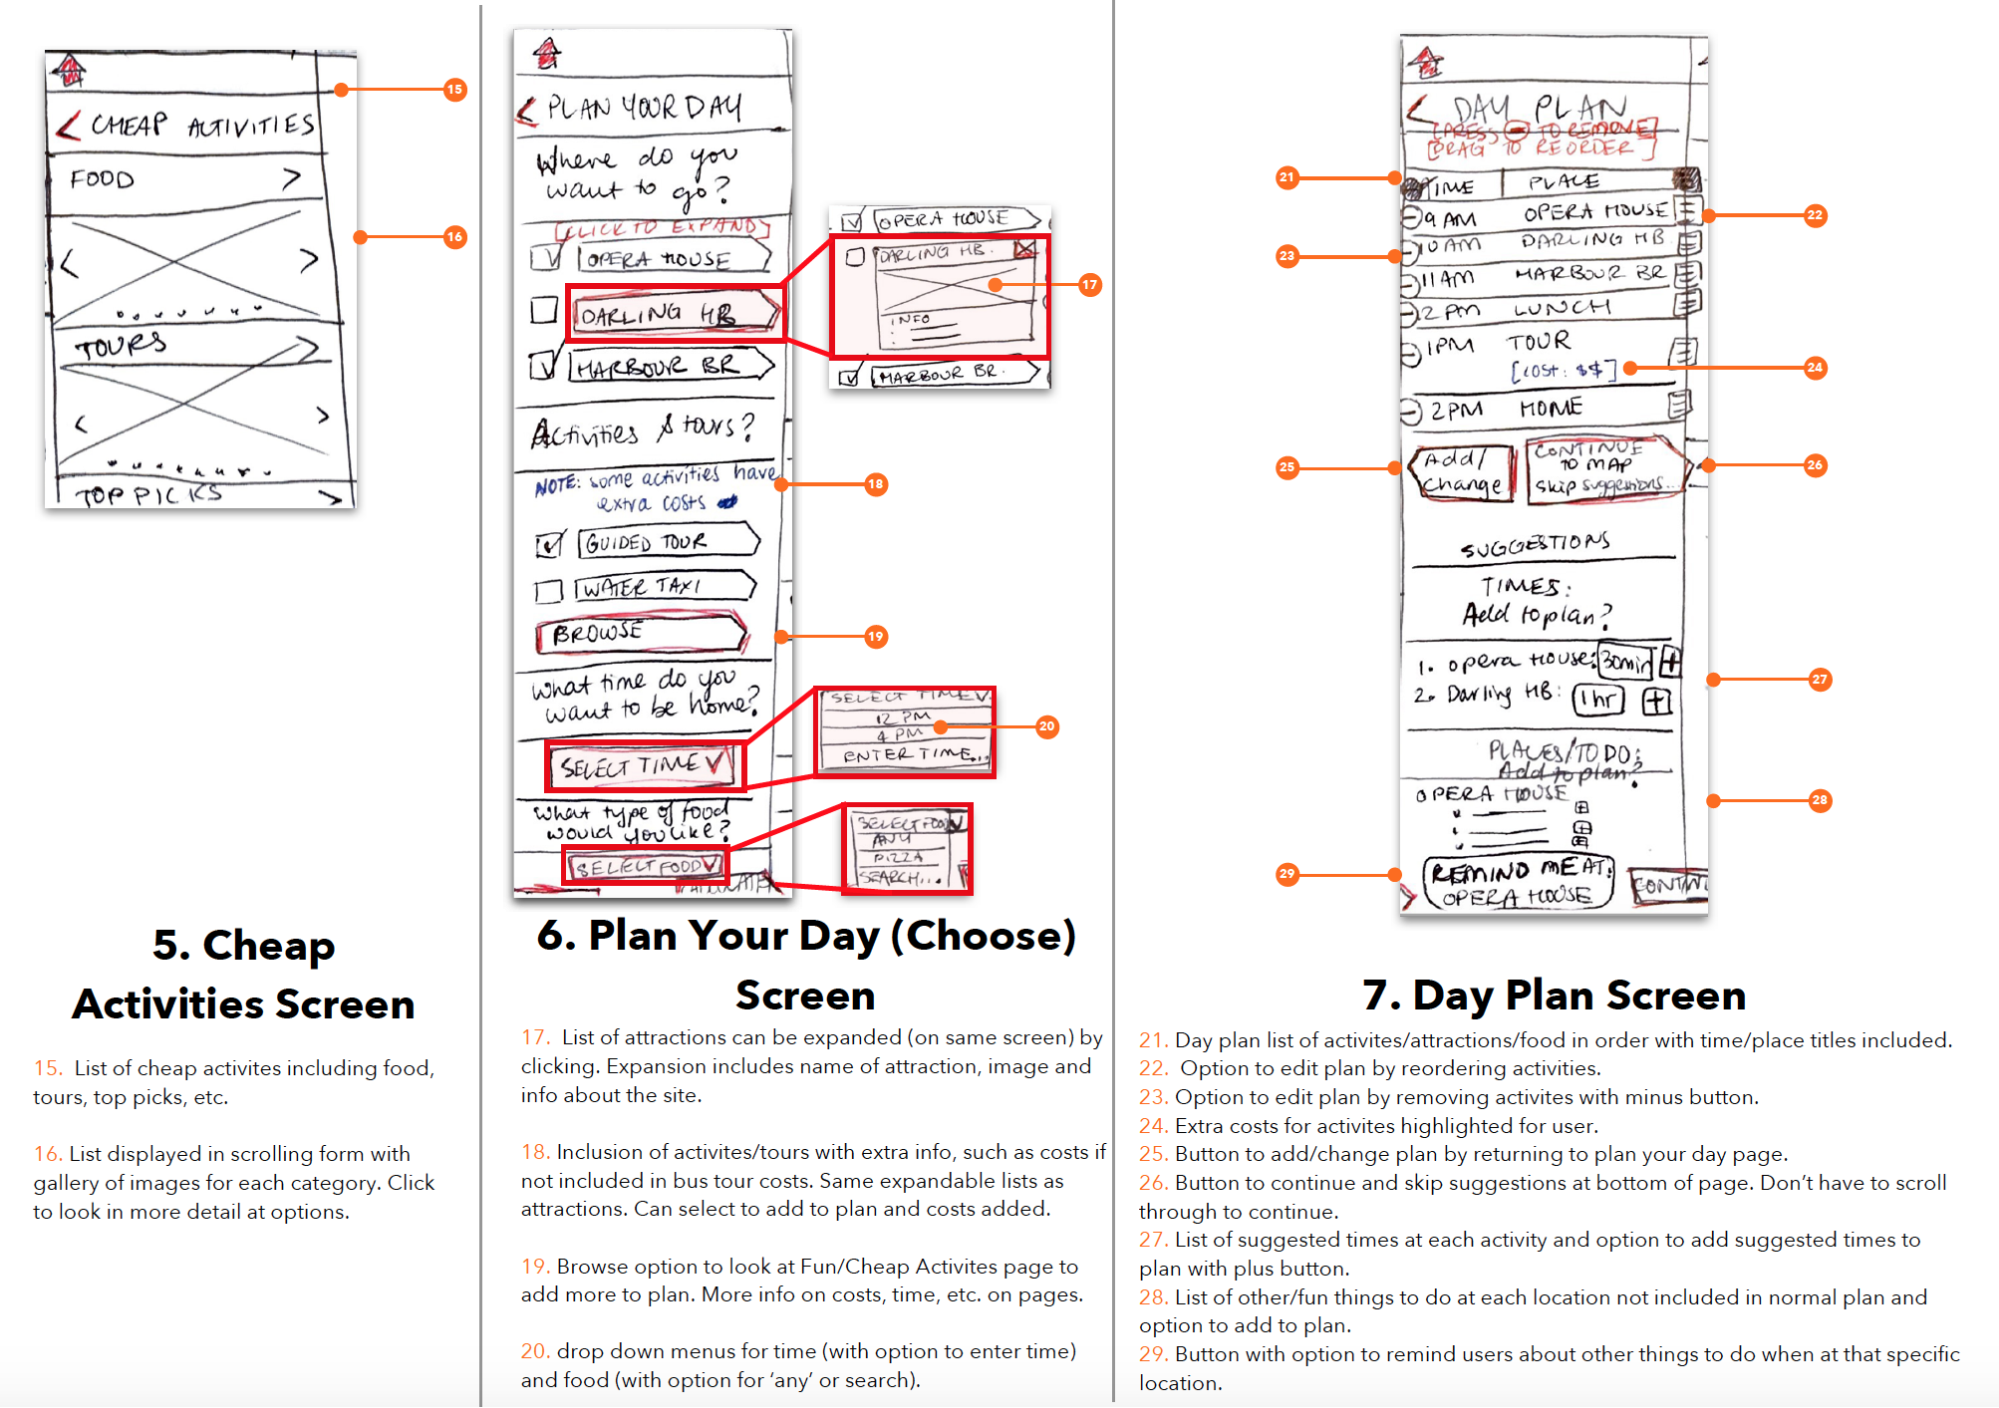 15
CHEAP ACTIVITIES
FOOD
16
TOURS
TOP PICKS
5. Cheap
Activities Screen
15. List of cheap activites including food,
tours, top picks, etc.
16. List displayed in scrolling form with
gallery of images for each category. Click
to look in more detail at options.
PLAN YOUR DAY
Where do you
want to go?
[CLICK TO EXPAND]
OPERA HOUSE
DARLING HB
HARBOUR BR
OPERA HOUSE
DARLING HB.
17
INFO
HARBOUR BR.
Activities & tours?
NOTE: some activities have
extra costs
18
GUIDED TOUR
WATER TAXI
BROWSE
19
What time do you
want to be home?
SELECT TIME
SELECT TIME
12 PM
4 PM
ENTER TIME...
20
What type of food
would you like?
SELECT FOOD
SELECT FOOD
ANY
PIZZA
SEARCH...
6. Plan Your Day (Choose)
Screen
17. List of attractions can be expanded (on same screen) by
clicking. Expansion includes name of attraction, image and
info about the site.
18. Inclusion of activites/tours with extra info, such as costs if
not included in bus tour costs. Same expandable lists as
attractions. Can select to add to plan and costs added.
19. Browse option to look at Fun/Cheap Activites page to
add more to plan. More info on costs, time, etc. on pages.
20. drop down menus for time (with option to enter time)
and food (with option for ‘any’ or search).
DAY PLAN
[PRESS - TO REMOVE]
[DRAG TO REORDER]
21
TIME PLACE
9 AM OPERA HOUSE
22
10 AM DARLING HB
23
11 AM HARBOUR BR
12 PM LUNCH
1PM TOUR
[COST: $$]
24
2PM HOME
25
Add/
Change
CONTINUE
TO MAP
Skip suggestions...
26
SUGGESTIONS
TIMES:
Add to plan?
1. Opera House: 30min +
2. Darling HB: 1 hr +
27
PLACES/TO DO:
Add to plan?
OPERA HOUSE
28
29
REMIND ME AT:
OPERA HOUSE
CONTIN
7. Day Plan Screen
21. Day plan list of activites/attractions/food in order with time/place titles included.
22. Option to edit plan by reordering activities.
23. Option to edit plan by removing activites with minus button.
24. Extra costs for activites highlighted for user.
25. Button to add/change plan by returning to plan your day page.
26. Button to continue and skip suggestions at bottom of page. Don’t have to scroll
through to continue.
27. List of suggested times at each activity and option to add suggested times to
plan with plus button.
28. List of other/fun things to do at each location not included in normal plan and
option to add to plan.
29. Button with option to remind users about other things to do when at that specific
location.